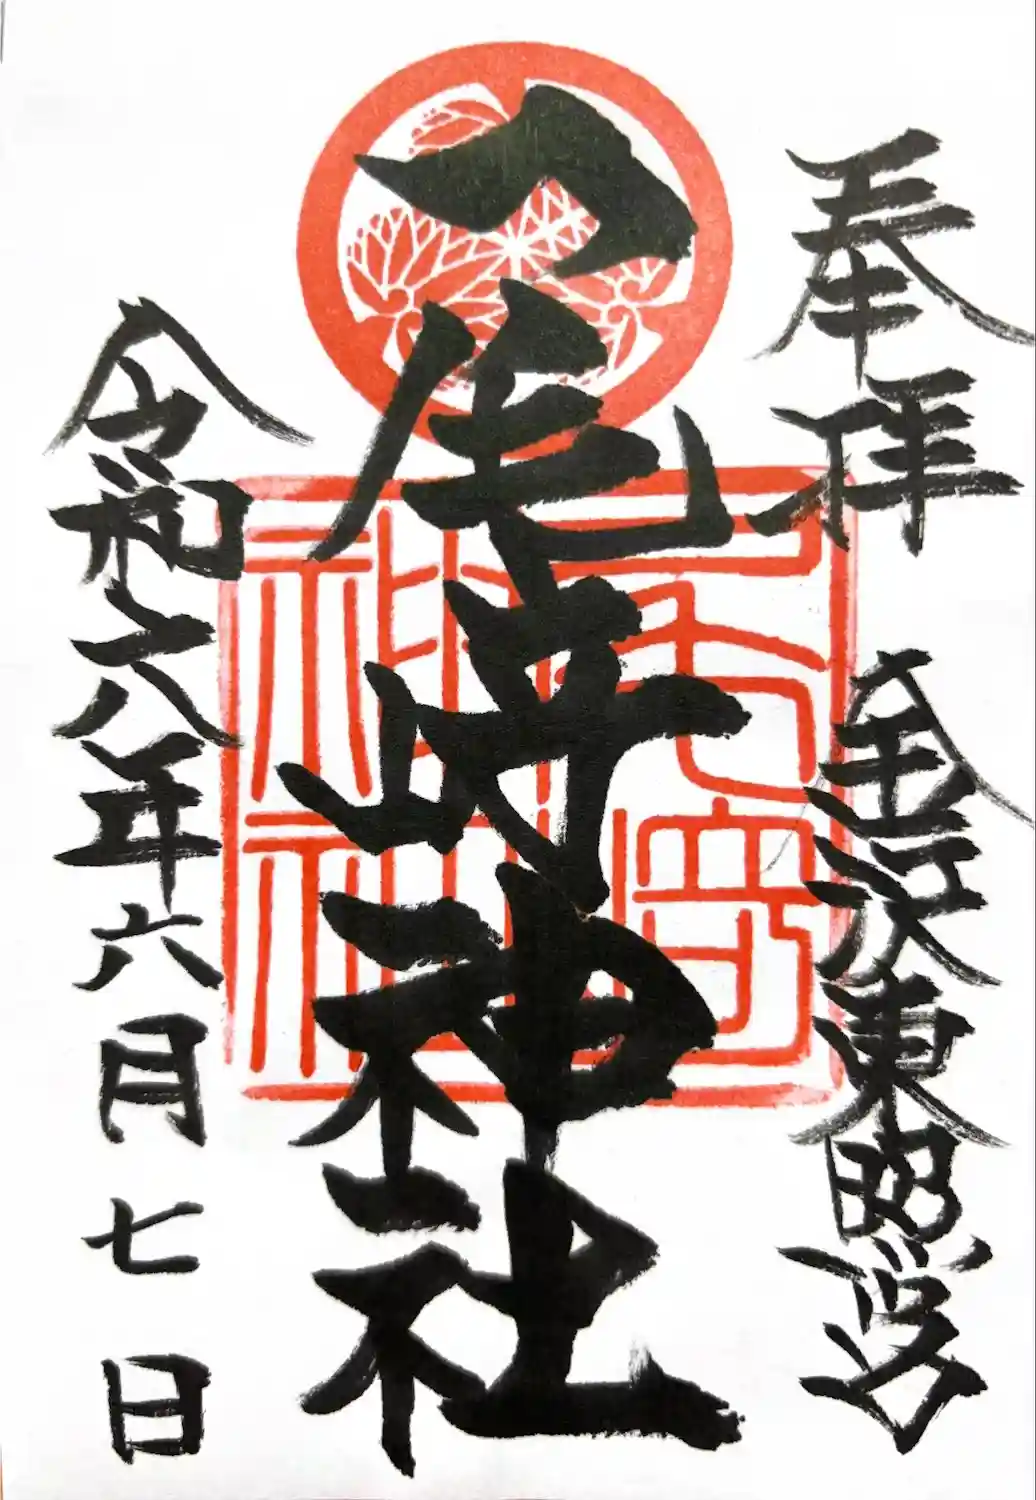 奉拝
金沢東照宮
尾崎神社
令和六年六月七日
尾崎
神社